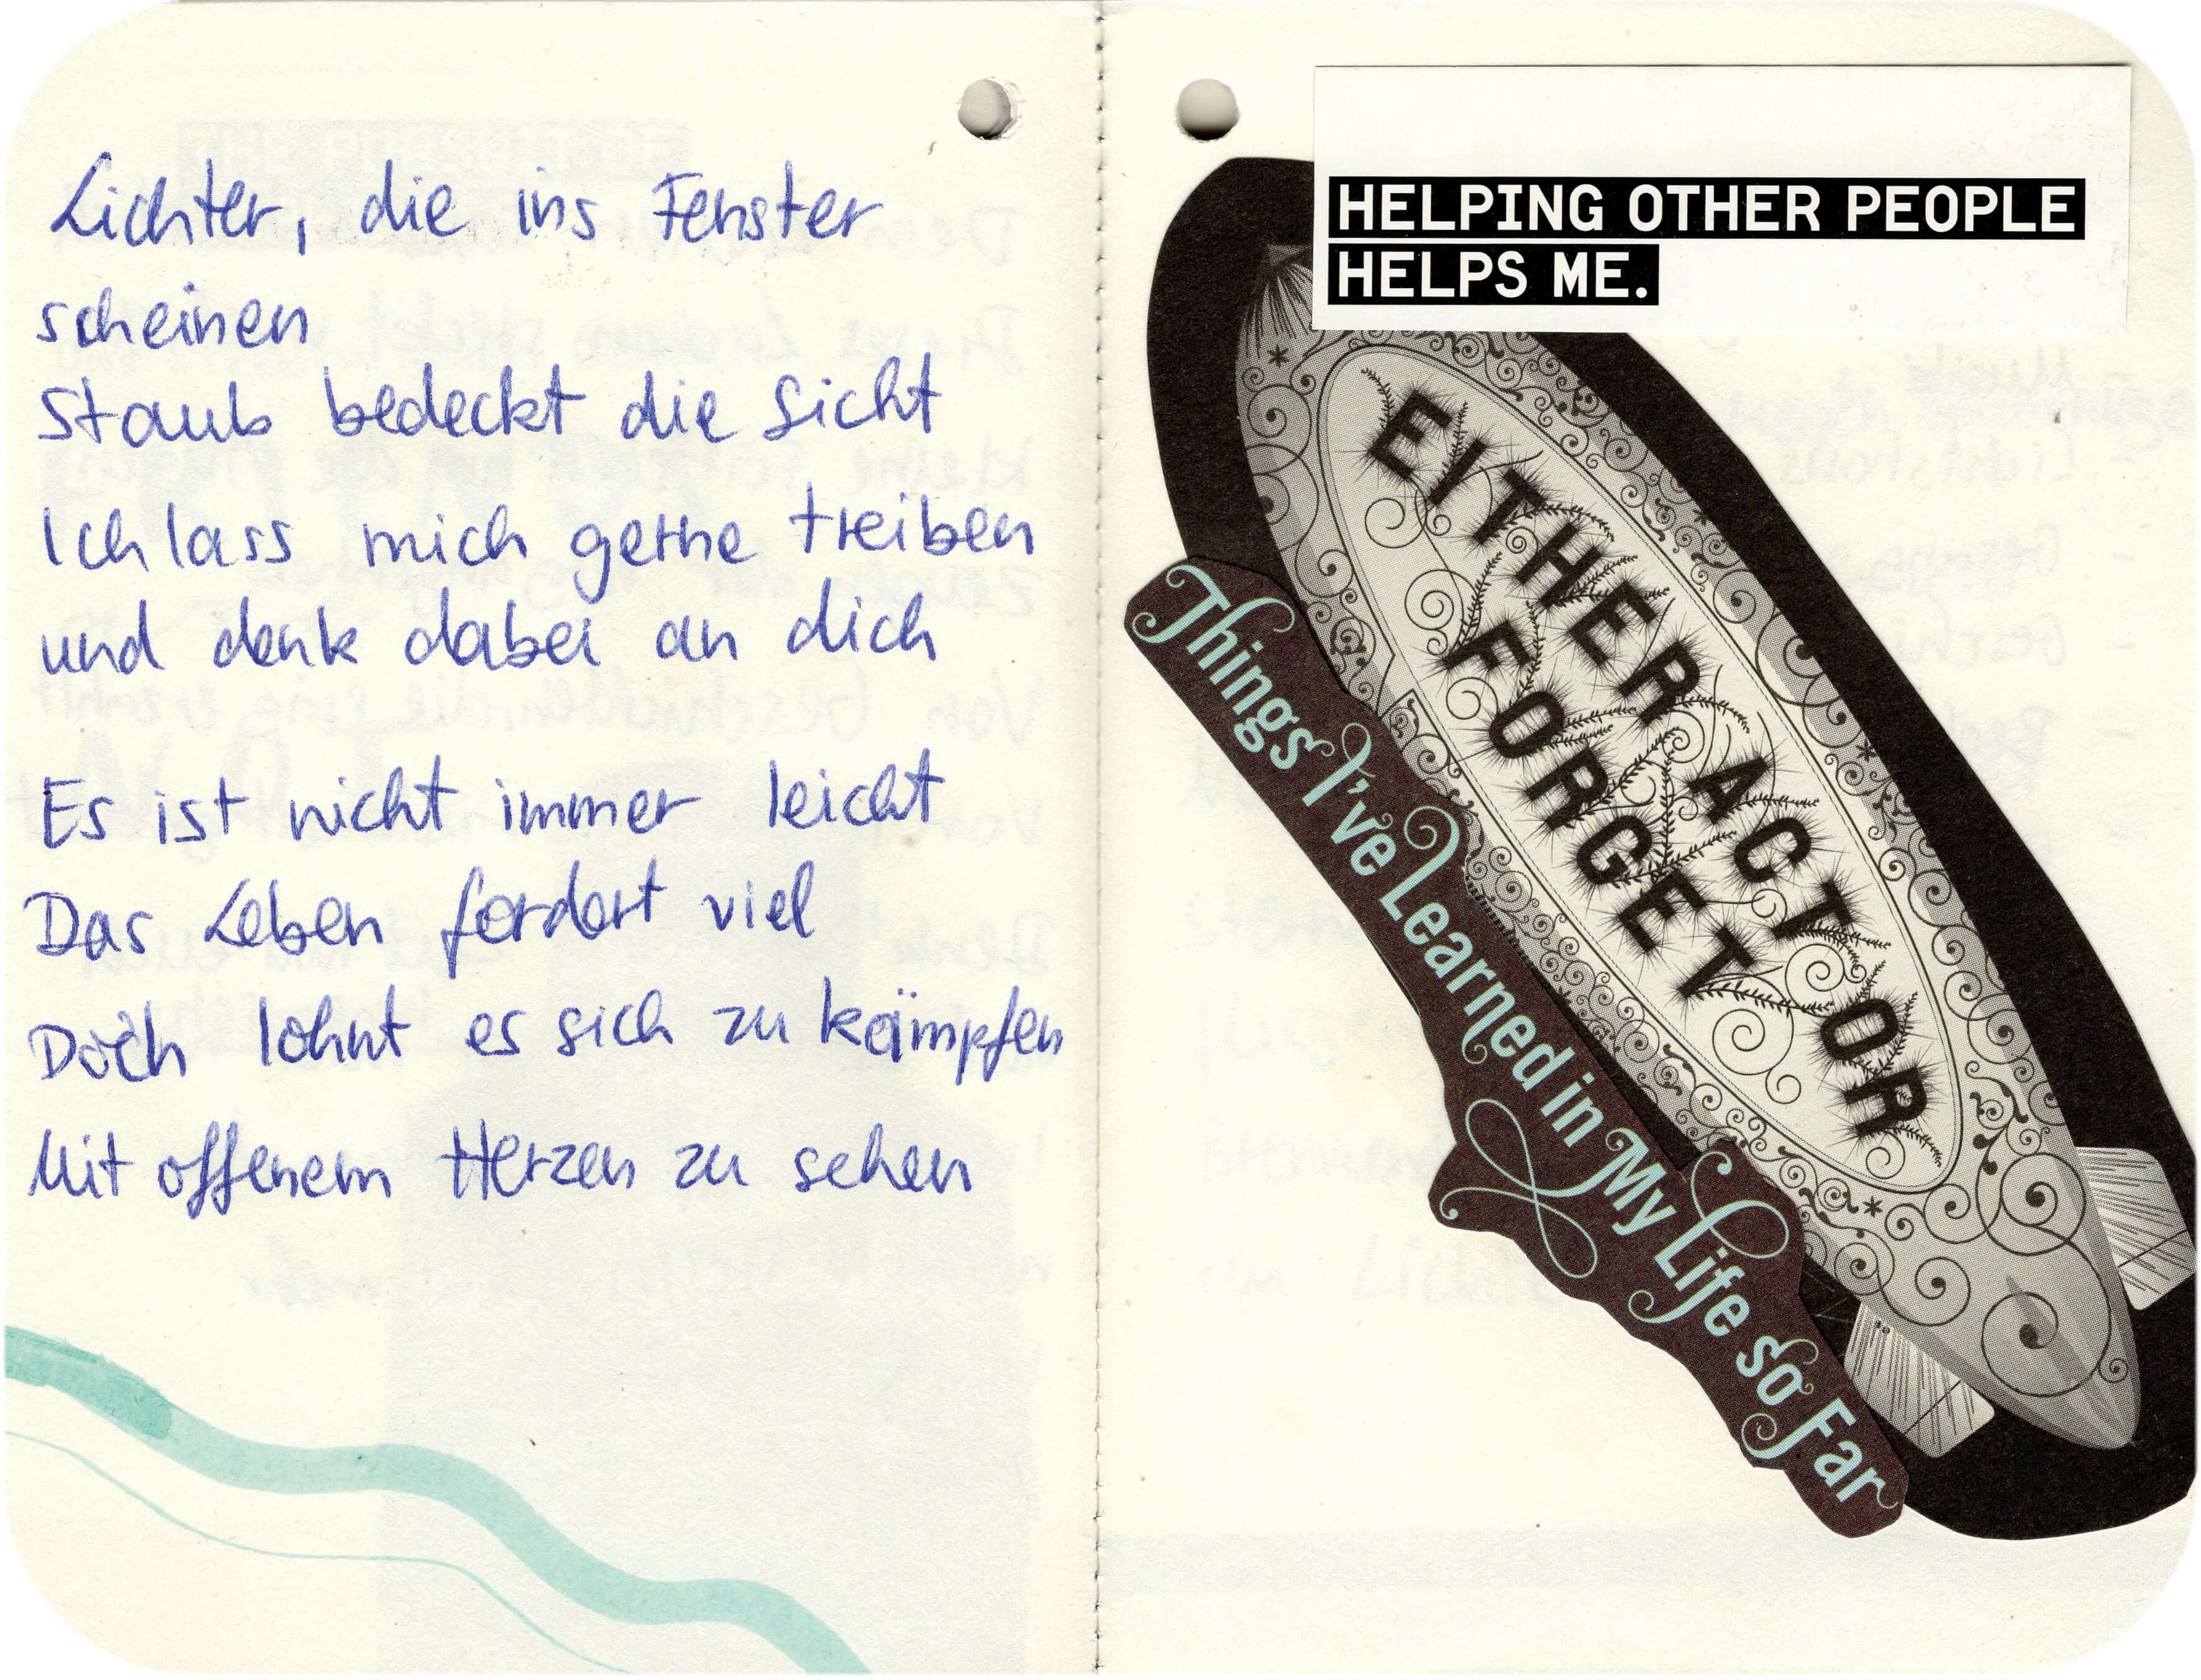 Lichter, die ins Fenster
scheinen
Staub bedeckt die Sicht
Ich lass mich gerne treiben
und denk dabei an dich
Es ist nicht immer leicht
Das Leben fordert viel
Doch lohnt es sich zu kämpfen
Mit offenem Herzen zu sehen
HELPING OTHER PEOPLE
HELPS ME.
EITHER ACT OR
FORGET
Things I've Learned in My Life so Far